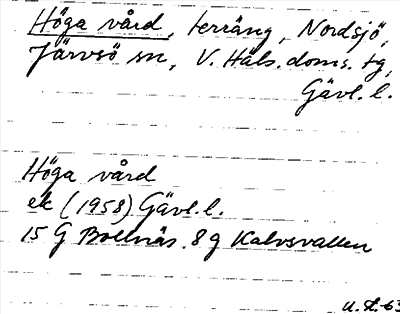 Höga vård, terräng, Nordsjö,
Järvsö sn, V. Häls. doms. tg,
Gävl. l.
Höga vård
ek (1958) Gävl. l.
15 G Bollnäs. 8 g Kalvsvallen